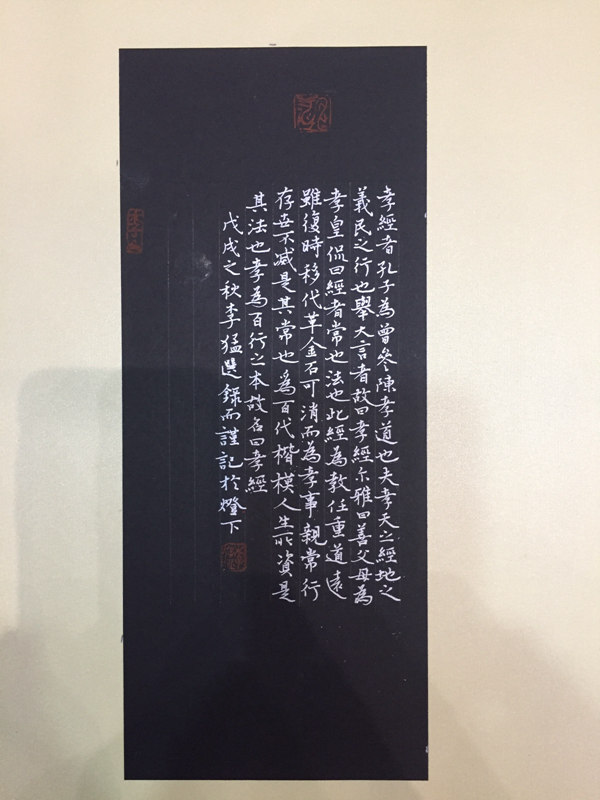 孝經者孔子為曾參陳孝道也夫孝天之經地之
義民之行也舉大言者故曰孝經尔雅曰善父母為
孝皇侃曰經者常也法也此經為教任重道遠
雖復時移代革金石可消而為孝事親常行
存世不滅是其常也為百代楷模人生所資是
其法也孝為百行之本故名曰孝經
戊戌之秋李猛選錄而謹記於燈下